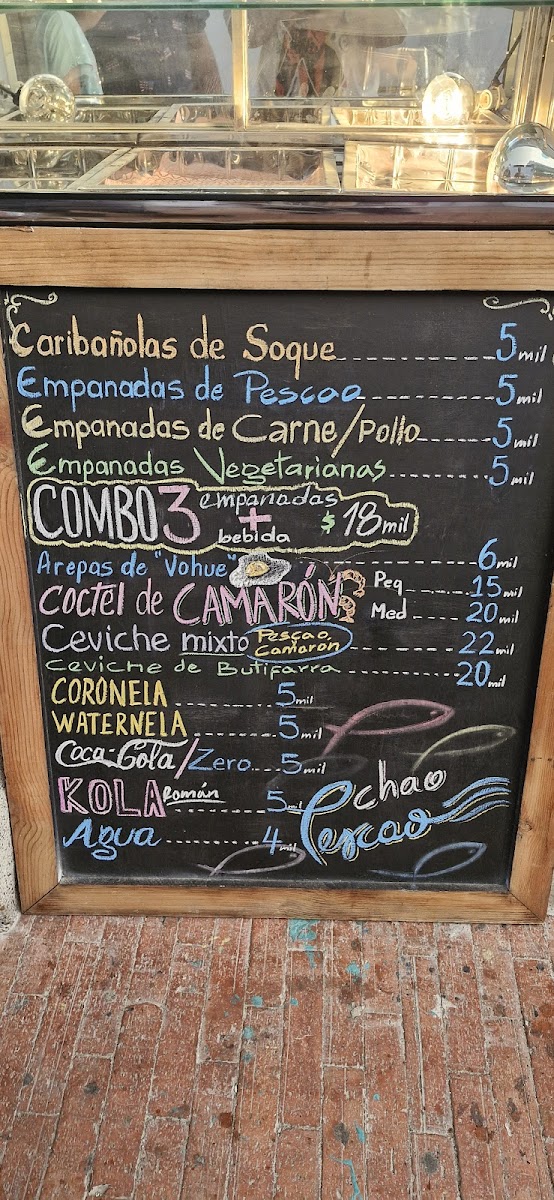 Caribañolas de Soque 5 mil
Empanadas de Pescao 5 mil
Empanadas de Carne/Pollo 5 mil
Empanadas Vegetarianas 5 mil
COMBO 3 empanadas + bebida $18 mil
Arepas de "Vohue" 6 mil
Coctel de CAMARÓN Peq 15 mil
Med 20 mil
Ceviche mixto Pescao, Camarón 22 mil
Ceviche de Butifarra 20 mil
CORONELA 5 mil
WATERNELA 5 mil
Coca-Cola/Zero 5 mil
KOLA Román 5 mil
Agua 4 mil
chao
Pescao